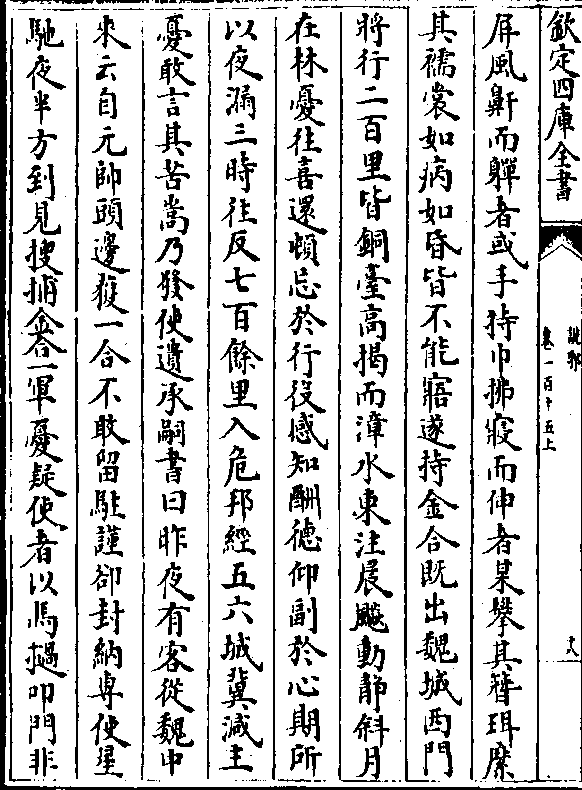 欽定四庫全書
說郛
卷一百十五上
十八
屏風鼾而嚲者或手持巾拂寢而伸者某攀其簪珥縻
其襦裳如病如昏皆不能寤遂持金合既出魏城西門
將行二百里皆銅臺高揭而漳水東注晨飈動静斜月
在林憂往喜還頓忘於行役感知酬德仰副於心期所
以夜漏三時往反七百餘里入危邦經五六城冀減主
憂敢言其苦嵩乃發使遺承嗣書曰昨夜有客從魏中
來云自元帥頭邊獲一合不敢留駐謹卻封納專使星
馳夜半方到見搜捕金合一軍憂疑使者以馬撾叩門非